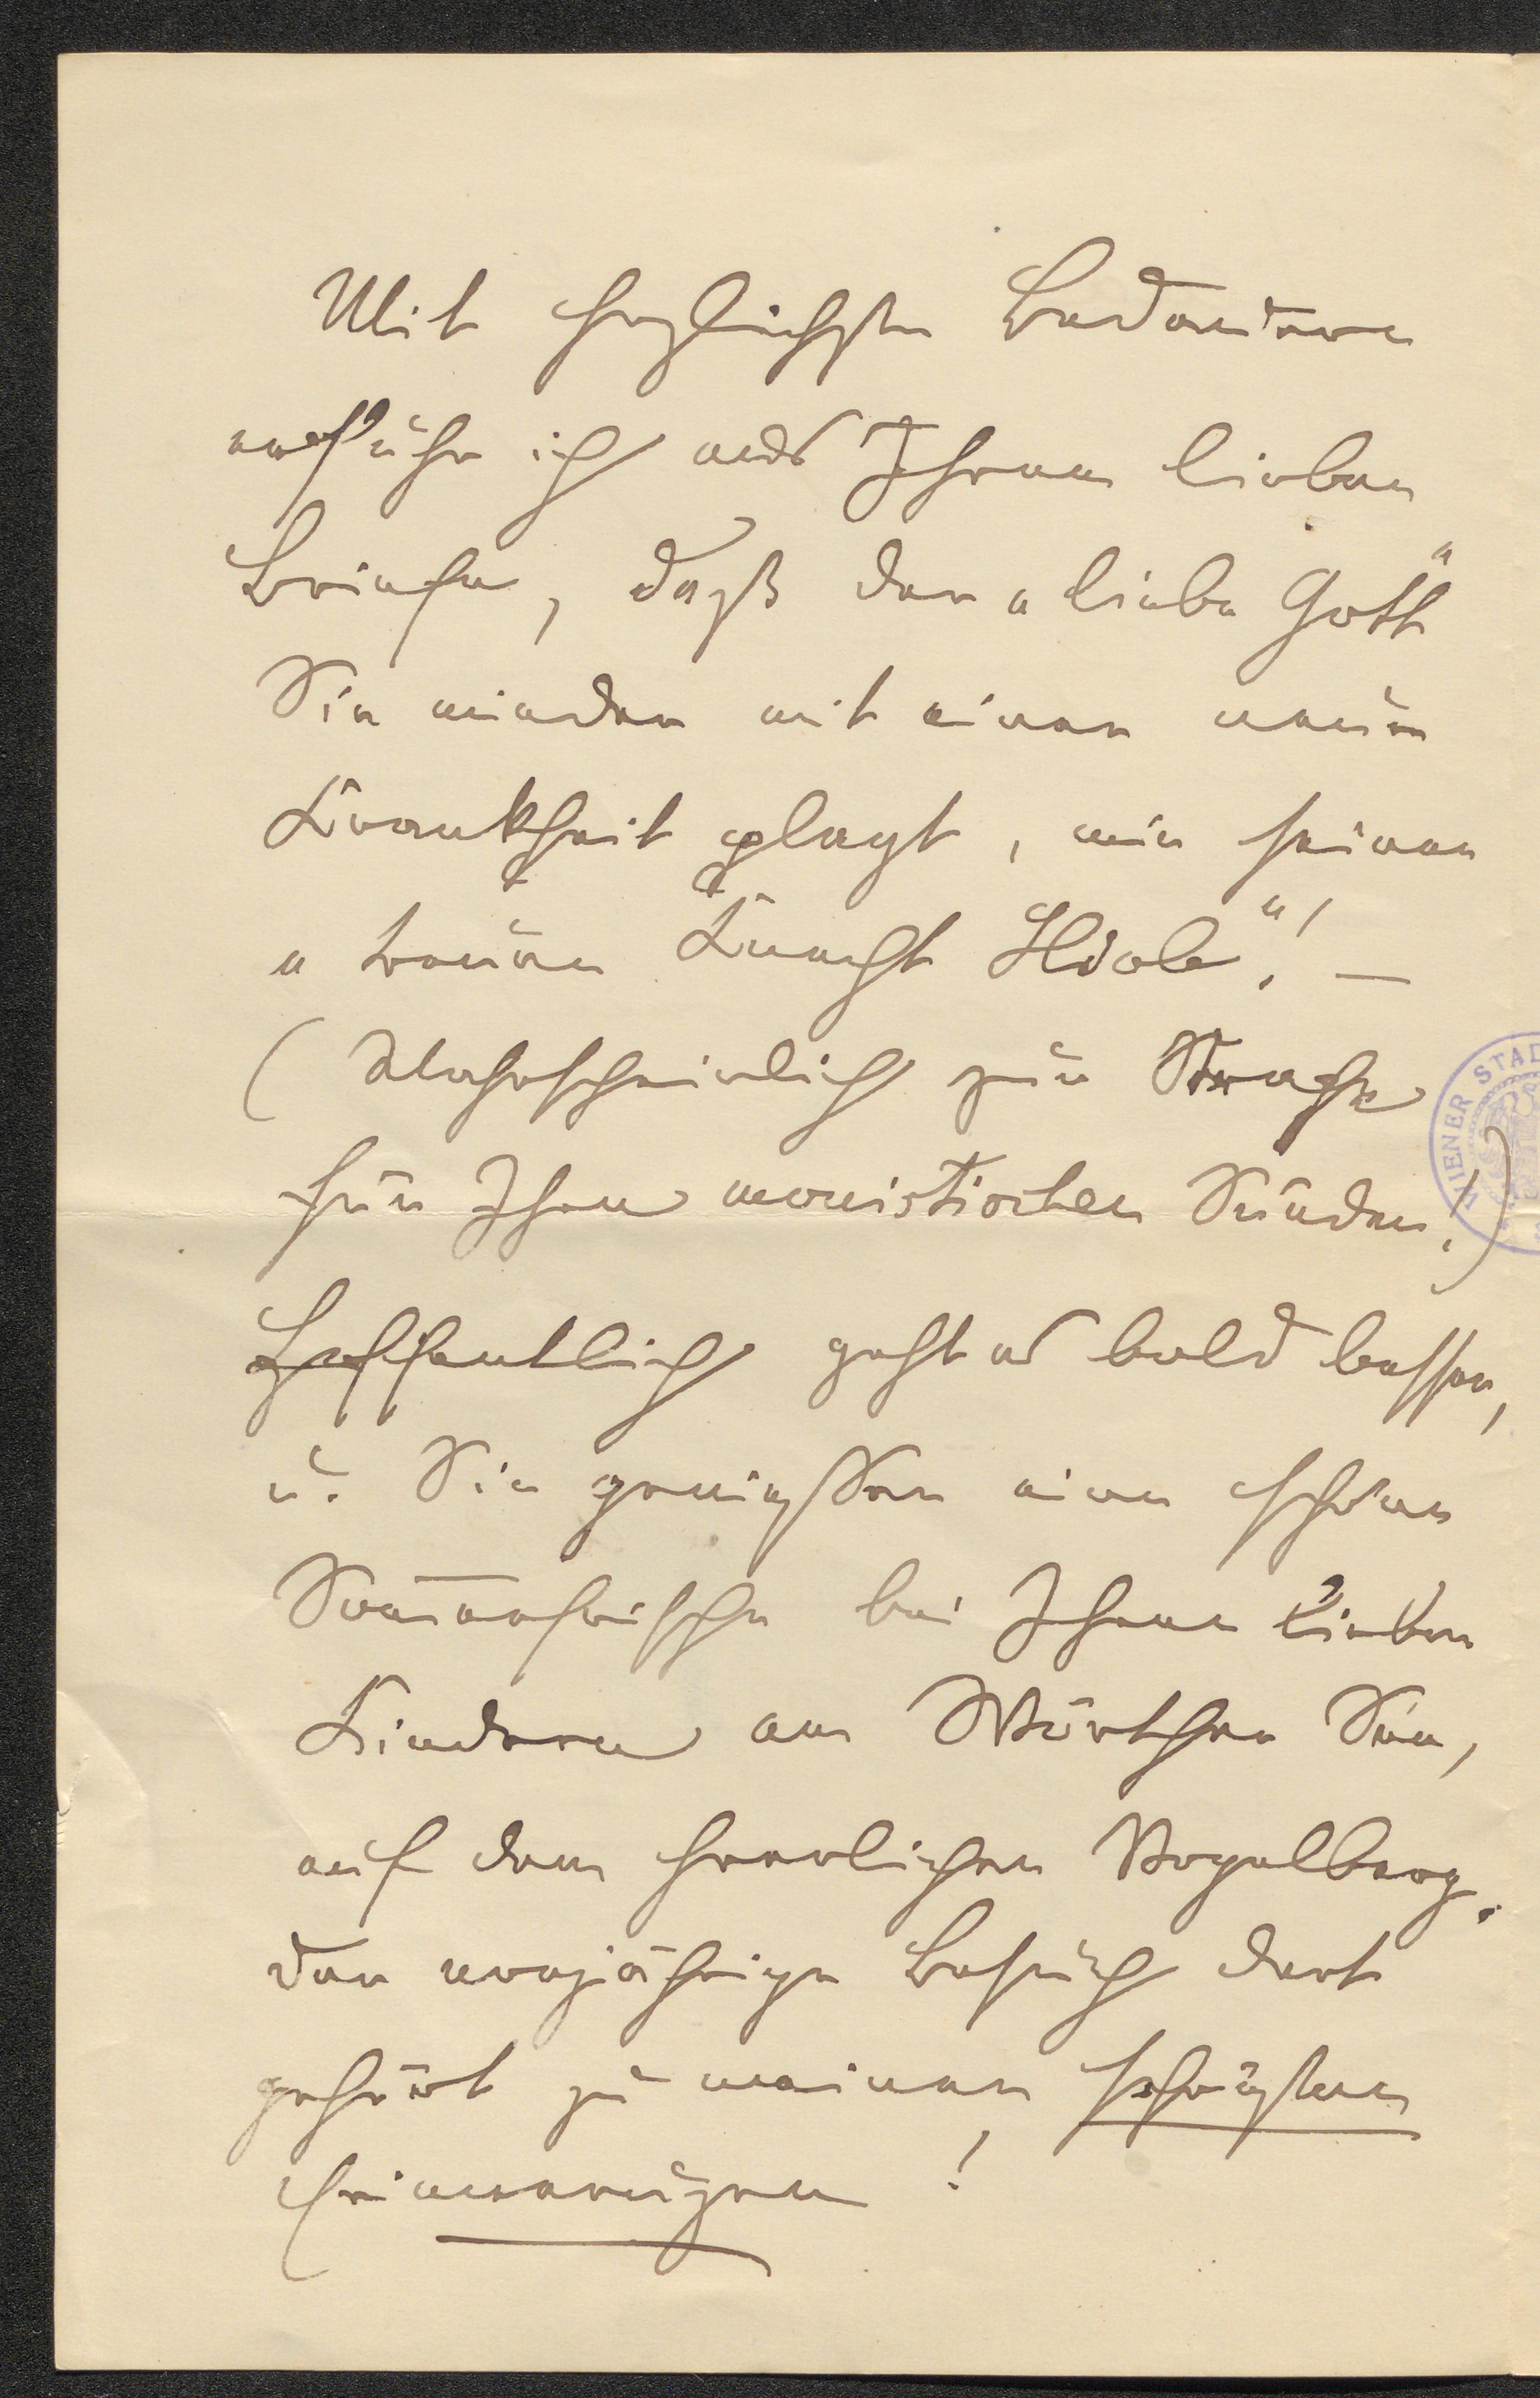 Mit herzlichsten Bedauern
erfuhr ich aus Ihrem lieben
Briefe, daß der „liebe Gott“
Sie wieder mit einer neuen
Krankheit plagt, wie seinen
„treuen Knecht Hiob“! —
(Wahrscheinlich zur Strafe
für Ihre monistischen Sünden!)
Hoffentlich geht es bald besser,
u. Sie genießen eine schöne
Som̄erfrische bei Ihren lieben
Kindern am Wörther See,
auf dem herrlichen Vogelberg.
Der vorjährige Besuch dort
gehört zu meinen schönsten
Erinnerungen!
WIENER STAD